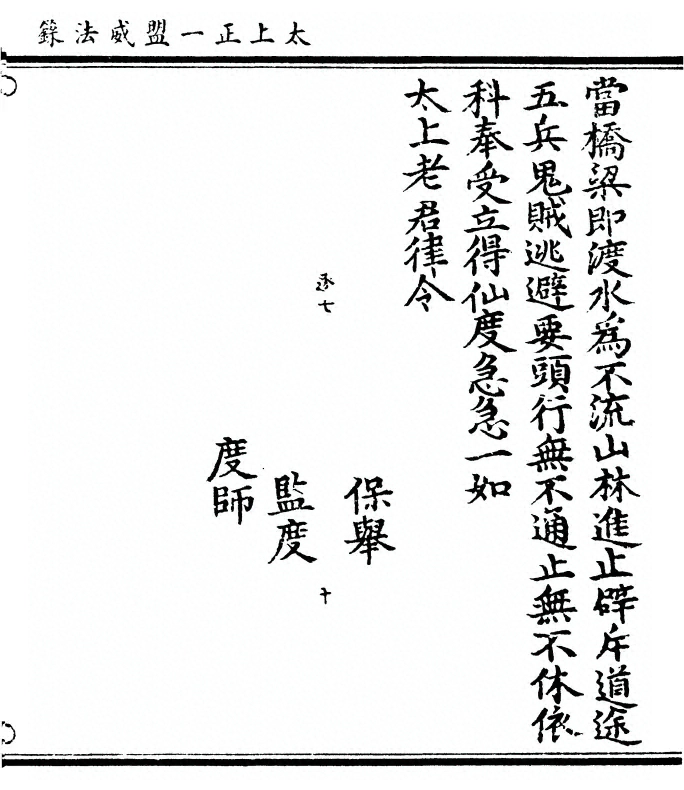 太上正一盟威法籙
當橋梁即渡水為不流山林進止辟斥道途
五兵鬼賊逃避要頭行無不通止無不休依
科奉受立得仙度急急一如
太上老君律令
逐七
十
保舉
監度
度師